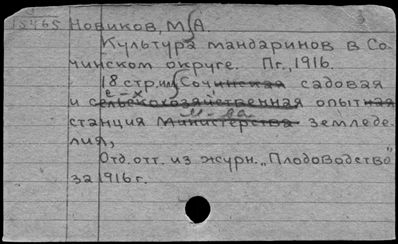 15465 Новиков, М. А.
Культура мандаринов в Со-
чинском округе. Пг., 1916.
18 стр. ил. Сочинская садовая
е – х
и сельскохозяйственная опытная
м – ва
станция Министерства земледе-
лия,
Отд. отт. из журн. „Плодоводство"
за 1916 г.